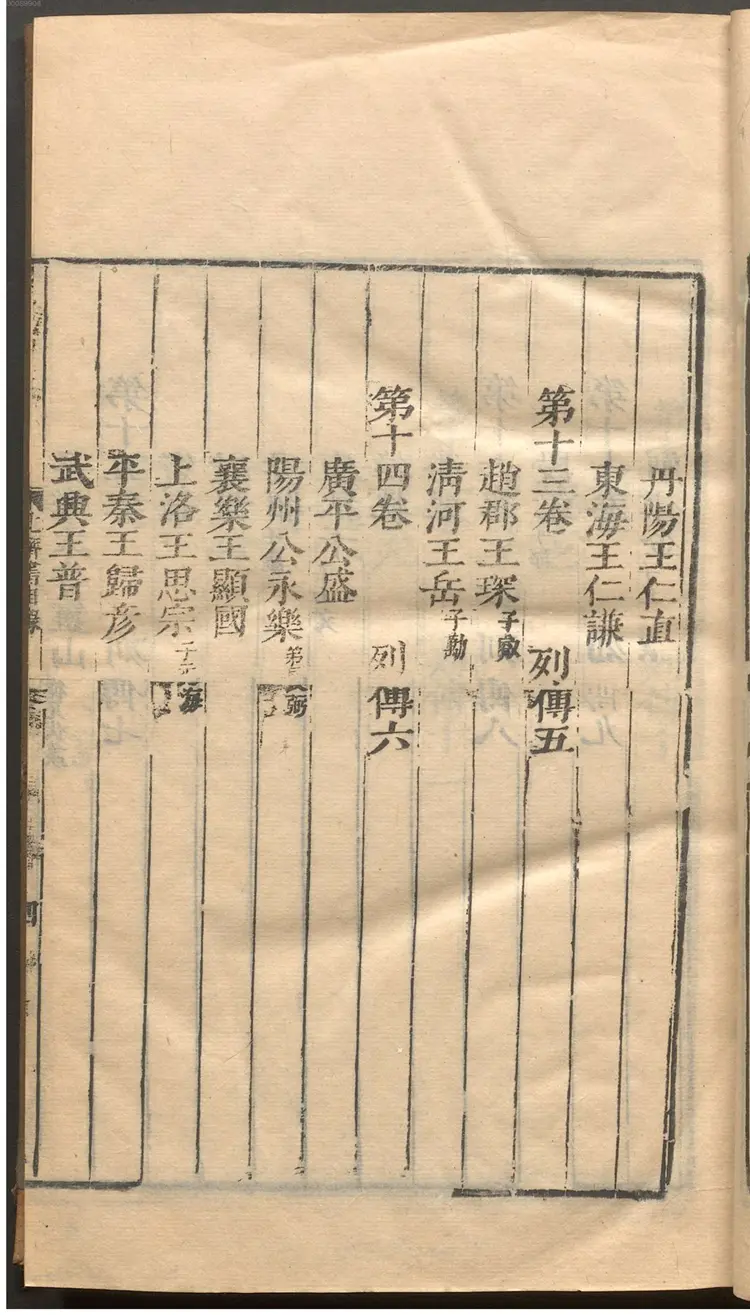 丹陽王仁直
東海王仁謙
第十三卷 列傳五
趙郡王琛 子叡
清河王岳 子勱
第十四卷 列傳六
廣平公盛
陽州公永樂 弟 弼
襄樂王顯國
上洛王思宗 子元海
平秦王歸彥
武興王普
四
00059904